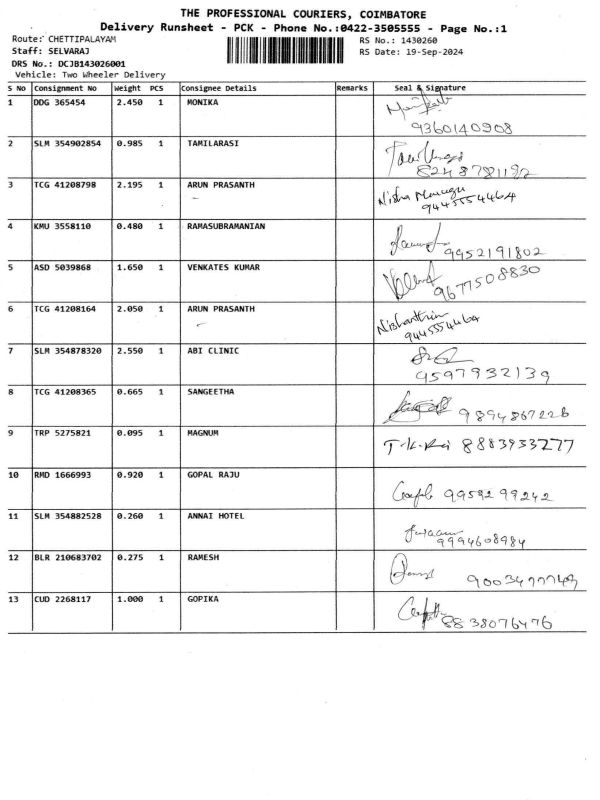 THE PROFESSIONAL COURIERS, COIMBATORE
Delivery Runsheet - PCK - Phone No.:0422-3505555 - Page No.:1
Route: CHETTIPALAYAM
RS No.: 1430260
Staff: SELVARAJ
RS Date: 19-Sep-2024
DRS No.: DCJB143026001
Vehicle: Two Wheeler Delivery
S No Consignment No Weight PCS Consignee Details Remarks Seal & Signature
1 DDG 365454 2.450 1 MONIKA
9360140908
2 SLM 354902854 0.985 1 TAMILARASI
3 TCG 41208798 2.195 1 ARUN PRASANTH
9445554464
4 KMU 3558110 0.480 1 RAMASUBRAMANIAN
9952191802
5 ASD 5039868 1.650 1 VENKATES KUMAR
9677508830
6 TCG 41208164 2.050 1 ARUN PRASANTH
9445554464
7 SLM 354878320 2.550 1 ABI CLINIC
9597932139
8 TCG 41208365 0.665 1 SANGEETHA
9894867226
9 TRP 5275821 0.095 1 MAGNUM
8883933277
10 RMD 1666993 0.920 1 GOPAL RAJU
99592 99242
11 SLM 354882528 0.260 1 ANNAI HOTEL
9994608984
12 BLR 210683702 0.275 1 RAMESH
13 CUD 2268117 1.000 1 GOPIKA
8838076476